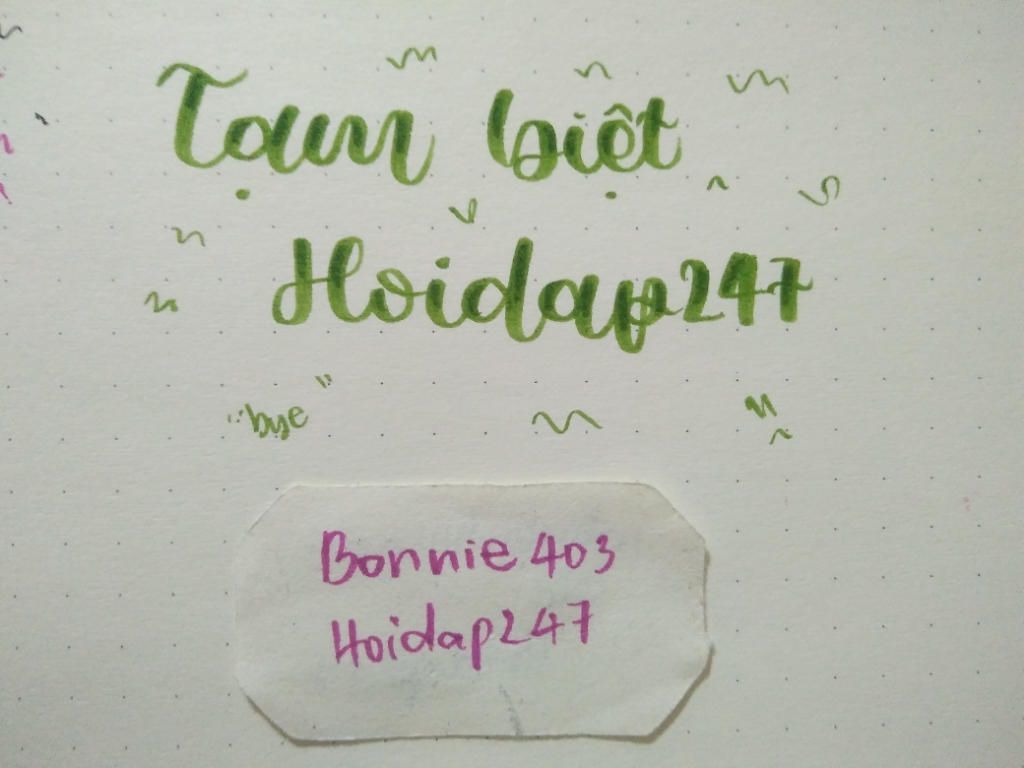 Tạm biệt
Hoidap247
"bye"
Bonnie403
Hoidap247